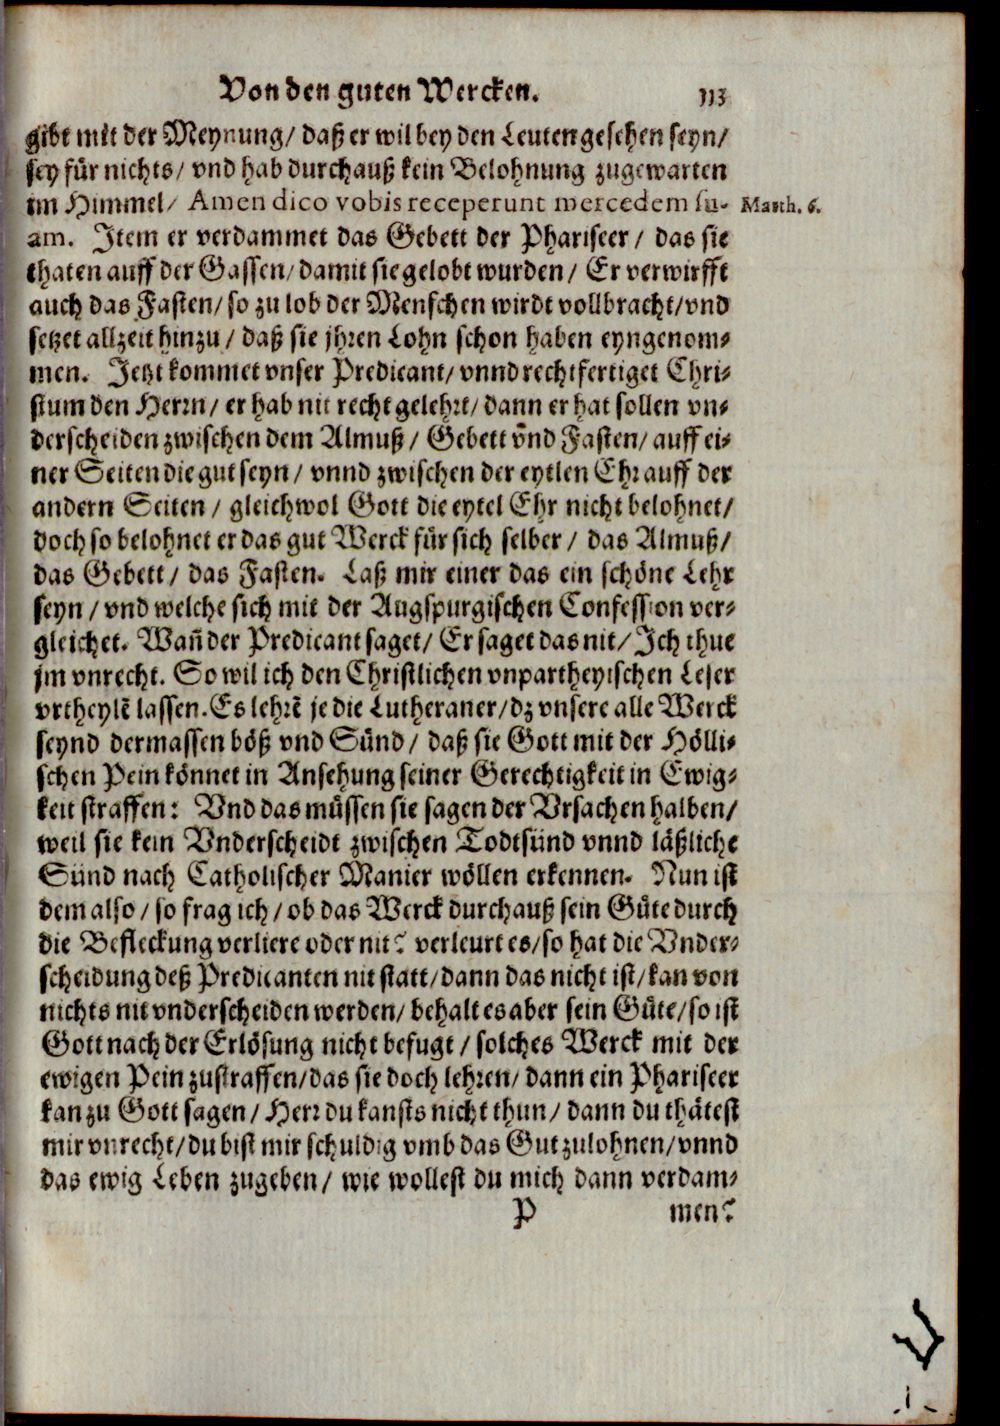 Von den guten Wercken. 113
gibt mit der Meynung/ daß er wil bey den Leuten gesehen seyn/
sey für nichts/ vnd hab durchauß kein Belohnung zugewarten
im Himmel/ Amen dico vobis receperunt mercedem su- Matth. 6.
am. Item er verdammet das Gebett der Phariseer / das sie
thaten auff der Gassen/ damit sie gelobt wurden/ Er verwirfft
auch das Fasten/ so zu lob der Menschen wirdt vollbracht/ vnd
setzet allzeit hinzu / daß sie jhren Lohn schon haben eyngenom-
men. Jetzt kommet vnser Predicant/ vnnd rechtfertiget Chri-
stum den Herrn/ er hab nit recht gelehrt/ dann er hat sollen vn-
derscheiden zwischen dem Almuß / Gebett vñd Fasten/ auff ei-
ner Seiten die gut seyn / vnnd zwischen der eytlen Ehr auff der
andern Seiten / gleichwol Gott die eytel Ehr nicht belohnet/
doch so belohnet er das gut Werck für sich selber / das Almuß/
das Gebett / das Fasten. Laß mir einer das ein schöne Lehr
seyn / vnd welche sich mit der Augspurgischen Confession ver-
gleichet. Wañ der Predicant saget/ Er saget das nit/ Ich thue
jm vnrecht. So wil ich den Christlichen vnpartheyischen Leser
vrtheylē lassen. Es lehrē je die Lutheraner/ dz vnsere alle Werck
seynd dermassen böß vnd Sünd / daß sie Gott mit der Hölli-
schen Pein könnet in Ansehung seiner Gerechtigkeit in Ewig-
keit straffen: Vnd das müssen sie sagen der Vrsachen halben/
weil sie kein Vnderscheidt zwischen Todtsünd vnnd läßliche
Sünd nach Catholischer Manier wöllen erkennen. Nun ist
dem also / so frag ich / ob das Werck durchauß sein Güte durch
die Befleckung verliere oder nit? verleurt es/ so hat die Vnder-
scheidung deß Predicanten nit statt/ dann das nicht ist/ kan von
nichts nit vnderscheiden werden/ behalt es aber sein Güte/ so ist
Gott nach der Erlösung nicht befugt / solches Werck mit der
ewigen Pein zustraffen/ das sie doch lehren/ dann ein Phariseer
kan zu Gott sagen/ Herr du kansts nicht thun/ dann du thätest
mir vnrecht/ du bist mir schuldig vmb das Gut zulohnen/ vnnd
das ewig Leben zugeben/ wie wollest du mich dann verdam-
P men?